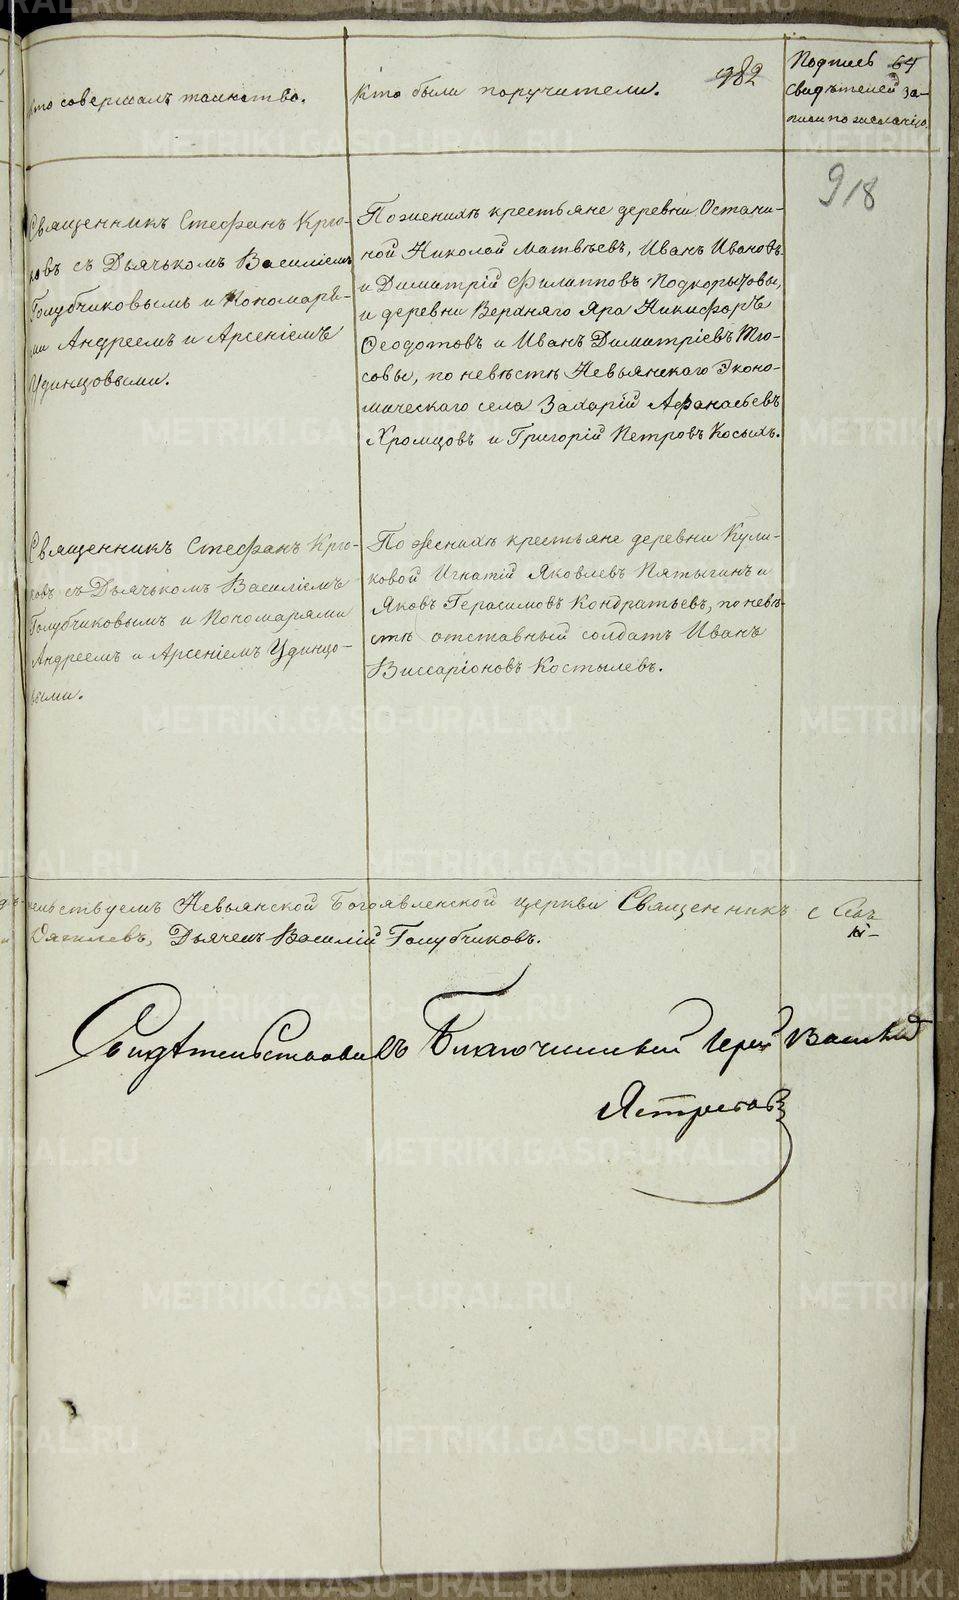 Кто совершалъ таинство.
Кто были поручители.
982
Подпись
64
свидѣтелей за-
писи по желанію.
918
Священникъ Стефанъ Крю-
ковъ съ Дьячькомъ Василіемъ
Голубчиковымъ и Пономаря-
ми Андреемъ и Арсеніемъ
Удинцовыми.
По женихѣ крестьяне деревни Остани-
ной Николай Матвѣевъ, Иванъ Ивановъ
и Димитрій Филипповъ Подкорытовы,
и деревни Верхняго Яра Никифоръ
Ѳеодотовъ и Иванъ Димитріевъ Тю-
совы, по невѣстѣ Невьянскаго Эконо-
мическаго села Захарій Афанасьевъ
Хромцовъ и Григорій Петровъ Косыхъ.
Священникъ Стефанъ Крю-
ковъ съ Дьячькомъ Василіемъ
Голубчиковымъ и Пономарями
Андреемъ и Арсеніемъ Удинцо-
выми.
По женихѣ крестьяне деревни Кули-
ковой Игнатій Яковлевъ Пятыгинъ и
Яковъ Герасимовъ Кондратьевъ, по невѣ-
стѣ отставный солдатъ Иванъ
Виссаріоновъ Костылевъ.
тельствуемъ Невьянской Богоявленской церкви Священникъ
Дьячекъ Василій Голубчиковъ.
Свидѣтельствовалъ Благочинный Іерей Василій
Ястребовъ
METRIKI.GASO-URAL.RU